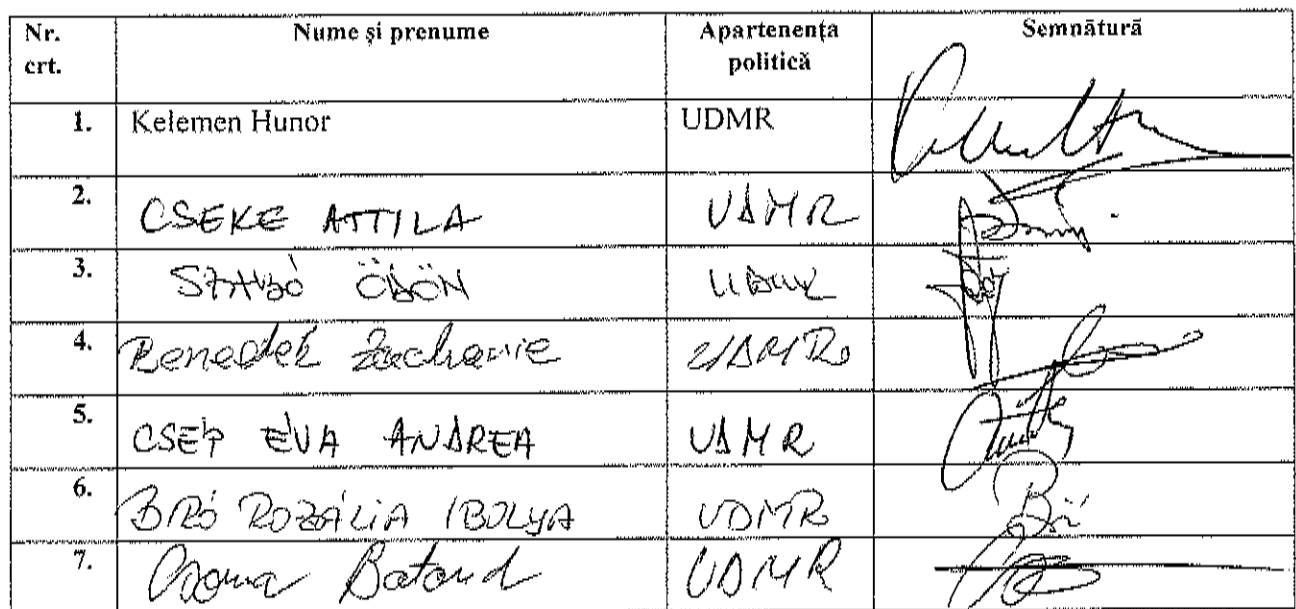 Nr. crt. Nume și prenume Apartenența politică Semnătură
1. Kelemen Hunor UDMR
2. CSEKE ATTILA UDMR
3. SZABÓ ÖDÖN UDMR
4. Benedek Zacharie UDMR
5. CSÉP ÉVA ANDREA UDMR
6. BIRÓ ROZÁLIA IBOLYA UDMR
7. Csoma Botond UDMR